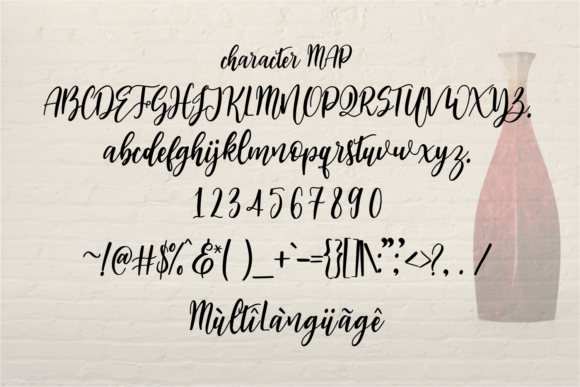 character MAP
ABCDEFGHIJKLMNOPQRSTUVWXYZ.
abcdefghijklmnopqrstuvwxyz.
1234567890
~!@#$%^&*( )_+`-={}[]|\:"";'<>?,./
MùltîLàngüãgê